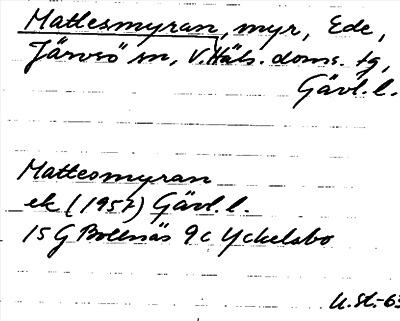 Matlesmyran, myr, Ede,
Järvsö sn, V. Häls. doms. tg,
Gävl. l.
Mattesmyran
ek (1957) Gävl. l.
15G Bollnäs 9c Yckelsbo
U. St. -63